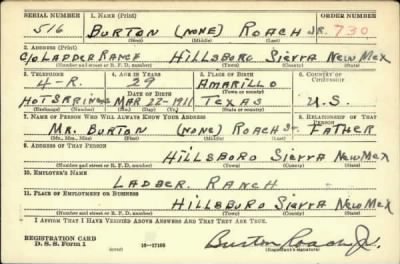 SERIAL NUMBER 1. NAME (Print) ORDER NUMBER
516 BURTON (NONE) ROACH JR. 730
(First) (Middle) (Last)
2. ADDRESS (Print)
C/O LADDER RANCH HILLSBORO SIERRA NEW MEX
(Number and street or R. F. D. number) (Town) (County) (State)
3. TELEPHONE 4. AGE IN YEARS 5. PLACE OF BIRTH 6. COUNTRY OF CITIZENSHIP
4-R. 29 AMARILLO
DATE OF BIRTH (Town or county)
HOT SPRINGS MAR 22-1911 TEXAS U.S.
(Exchange) (Number) (Mo.) (Day) (Yr.) (State or country)
7. NAME OF PERSON WHO WILL ALWAYS KNOW YOUR ADDRESS 8. RELATIONSHIP OF THAT PERSON
MR. BURTON (NONE) ROACH SR. FATHER
(Mr., Mrs., Miss) (First) (Middle) (Last)
9. ADDRESS OF THAT PERSON
HILLSBORO SIERRA NEW MEX
(Number and street or R. F. D. number) (Town) (County) (State)
10. EMPLOYER'S NAME
LADDER RANCH
11. PLACE OF EMPLOYMENT OR BUSINESS
HILLSBORO SIERRA NEW MEX
(Number and street or R. F. D. number) (Town) (County) (State)
I AFFIRM THAT I HAVE VERIFIED ABOVE ANSWERS AND THAT THEY ARE TRUE.
REGISTRATION CARD
D. S. S. Form 1 16-17105 Burton Roach Jr.
(Registrant's signature)